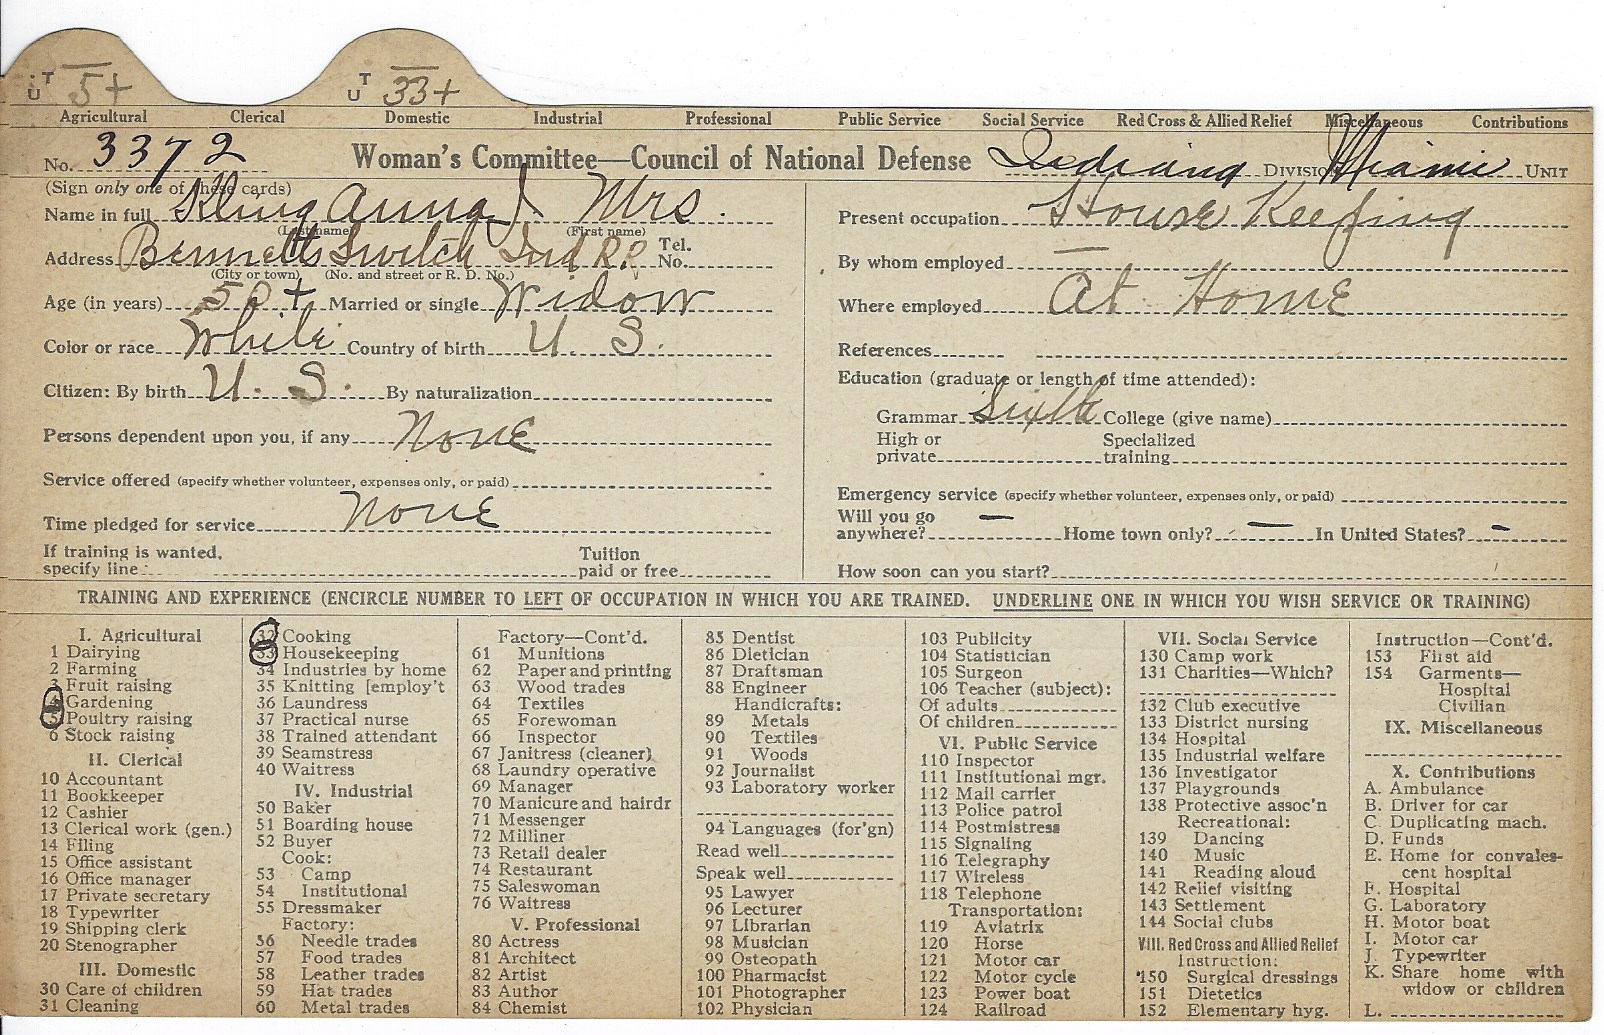 T U 5+ T U 33+
Agricultural Clerical Domestic Industrial Professional Public Service Social Service Red Cross & Allied Relief Miscellaneous Contributions
No. 3372 Woman's Committee—Council of National Defense Indiana DIVISION Miami UNIT
(Sign only one of these cards)
Name in full Kling Anna J Mrs.
(Last name) (First name)
Address Bennetts Switch Ind RR Tel. No.
(City or town) (No. and street or R. D. No.)
Age (in years) 50+ Married or single Widow
Color or race White Country of birth U. S.
Citizen: By birth U. S. By naturalization
Persons dependent upon you, if any None
Service offered (specify whether volunteer, expenses only, or paid)
Time pledged for service None
If training is wanted, specify line Tuition paid or free
Present occupation House Keeping
By whom employed —
Where employed At Home
References
Education (graduate or length of time attended):
Grammar Sixth College (give name)
High or private Specialized training
Emergency service (specify whether volunteer, expenses only, or paid)
Will you go anywhere? — Home town only? — In United States? -
How soon can you start?
TRAINING AND EXPERIENCE (ENCIRCLE NUMBER TO LEFT OF OCCUPATION IN WHICH YOU ARE TRAINED. UNDERLINE ONE IN WHICH YOU WISH SERVICE OR TRAINING)
I. Agricultural
1 Dairying
2 Farming
3 Fruit raising
4 Gardening
5 Poultry raising
6 Stock raising
II. Clerical
10 Accountant
11 Bookkeeper
12 Cashier
13 Clerical work (gen.)
14 Filing
15 Office assistant
16 Office manager
17 Private secretary
18 Typewriter
19 Shipping clerk
20 Stenographer
III. Domestic
30 Care of children
31 Cleaning
32 Cooking
33 Housekeeping
34 Industries by home
35 Knitting [employ't
36 Laundress
37 Practical nurse
38 Trained attendant
39 Seamstress
40 Waitress
IV. Industrial
50 Baker
51 Boarding house
52 Buyer
Cook:
53 Camp
54 Institutional
55 Dressmaker
Factory:
56 Needle trades
57 Food trades
58 Leather trades
59 Hat trades
60 Metal trades
Factory—Cont'd.
61 Munitions
62 Paper and printing
63 Wood trades
64 Textiles
65 Forewoman
66 Inspector
67 Janitress (cleaner)
68 Laundry operative
69 Manager
70 Manicure and hairdr
71 Messenger
72 Milliner
73 Retail dealer
74 Restaurant
75 Saleswoman
76 Waitress
V. Professional
80 Actress
81 Architect
82 Artist
83 Author
84 Chemist
85 Dentist
86 Dietician
87 Draftsman
88 Engineer
Handicrafts:
89 Metals
90 Textiles
91 Woods
92 Journalist
93 Laboratory worker
94 Languages (for'gn)
Read well
Speak well
95 Lawyer
96 Lecturer
97 Librarian
98 Musician
99 Osteopath
100 Pharmacist
101 Photographer
102 Physician
103 Publicity
104 Statistician
105 Surgeon
106 Teacher (subject):
Of adults
Of children
VI. Public Service
110 Inspector
111 Institutional mgr.
112 Mail carrier
113 Police patrol
114 Postmistress
115 Signaling
116 Telegraphy
117 Wireless
118 Telephone
Transportation:
119 Aviatrix
120 Horse
121 Motor car
122 Motor cycle
123 Power boat
124 Railroad
VII. Social Service
130 Camp work
131 Charities—Which?
132 Club executive
133 District nursing
134 Hospital
135 Industrial welfare
136 Investigator
137 Playgrounds
138 Protective assoc'n
Recreational:
139 Dancing
140 Music
141 Reading aloud
142 Relief visiting
143 Settlement
144 Social clubs
VIII. Red Cross and Allied Relief
Instruction:
150 Surgical dressings
151 Dietetics
152 Elementary hyg.
Instruction—Cont'd.
153 First aid
154 Garments—
Hospital
Civilian
IX. Miscellaneous
X. Contributions
A. Ambulance
B. Driver for car
C. Duplicating mach.
D. Funds
E. Home for convales-
cent hospital
F. Hospital
G. Laboratory
H. Motor boat
I. Motor car
J. Typewriter
K. Share home with
widow or children
L.